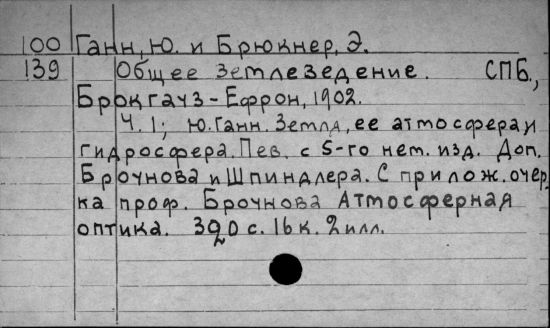 100 Ганн, Ю. и Брюкнер, Э.
139 Общее землеведение. СПБ.,
Брокгауз-Ефрон, 1902.
Ч. 1; Ю. Ганн. Земля, ее атмосфера и
гидросфера. Пев. с 5-го нем. изд. Доп.
Броунова и Шпиндлера. С прилож. очер.
ка проф. Броунова Атмосферная
оптика. 320 с. 16 к. 2 илл.